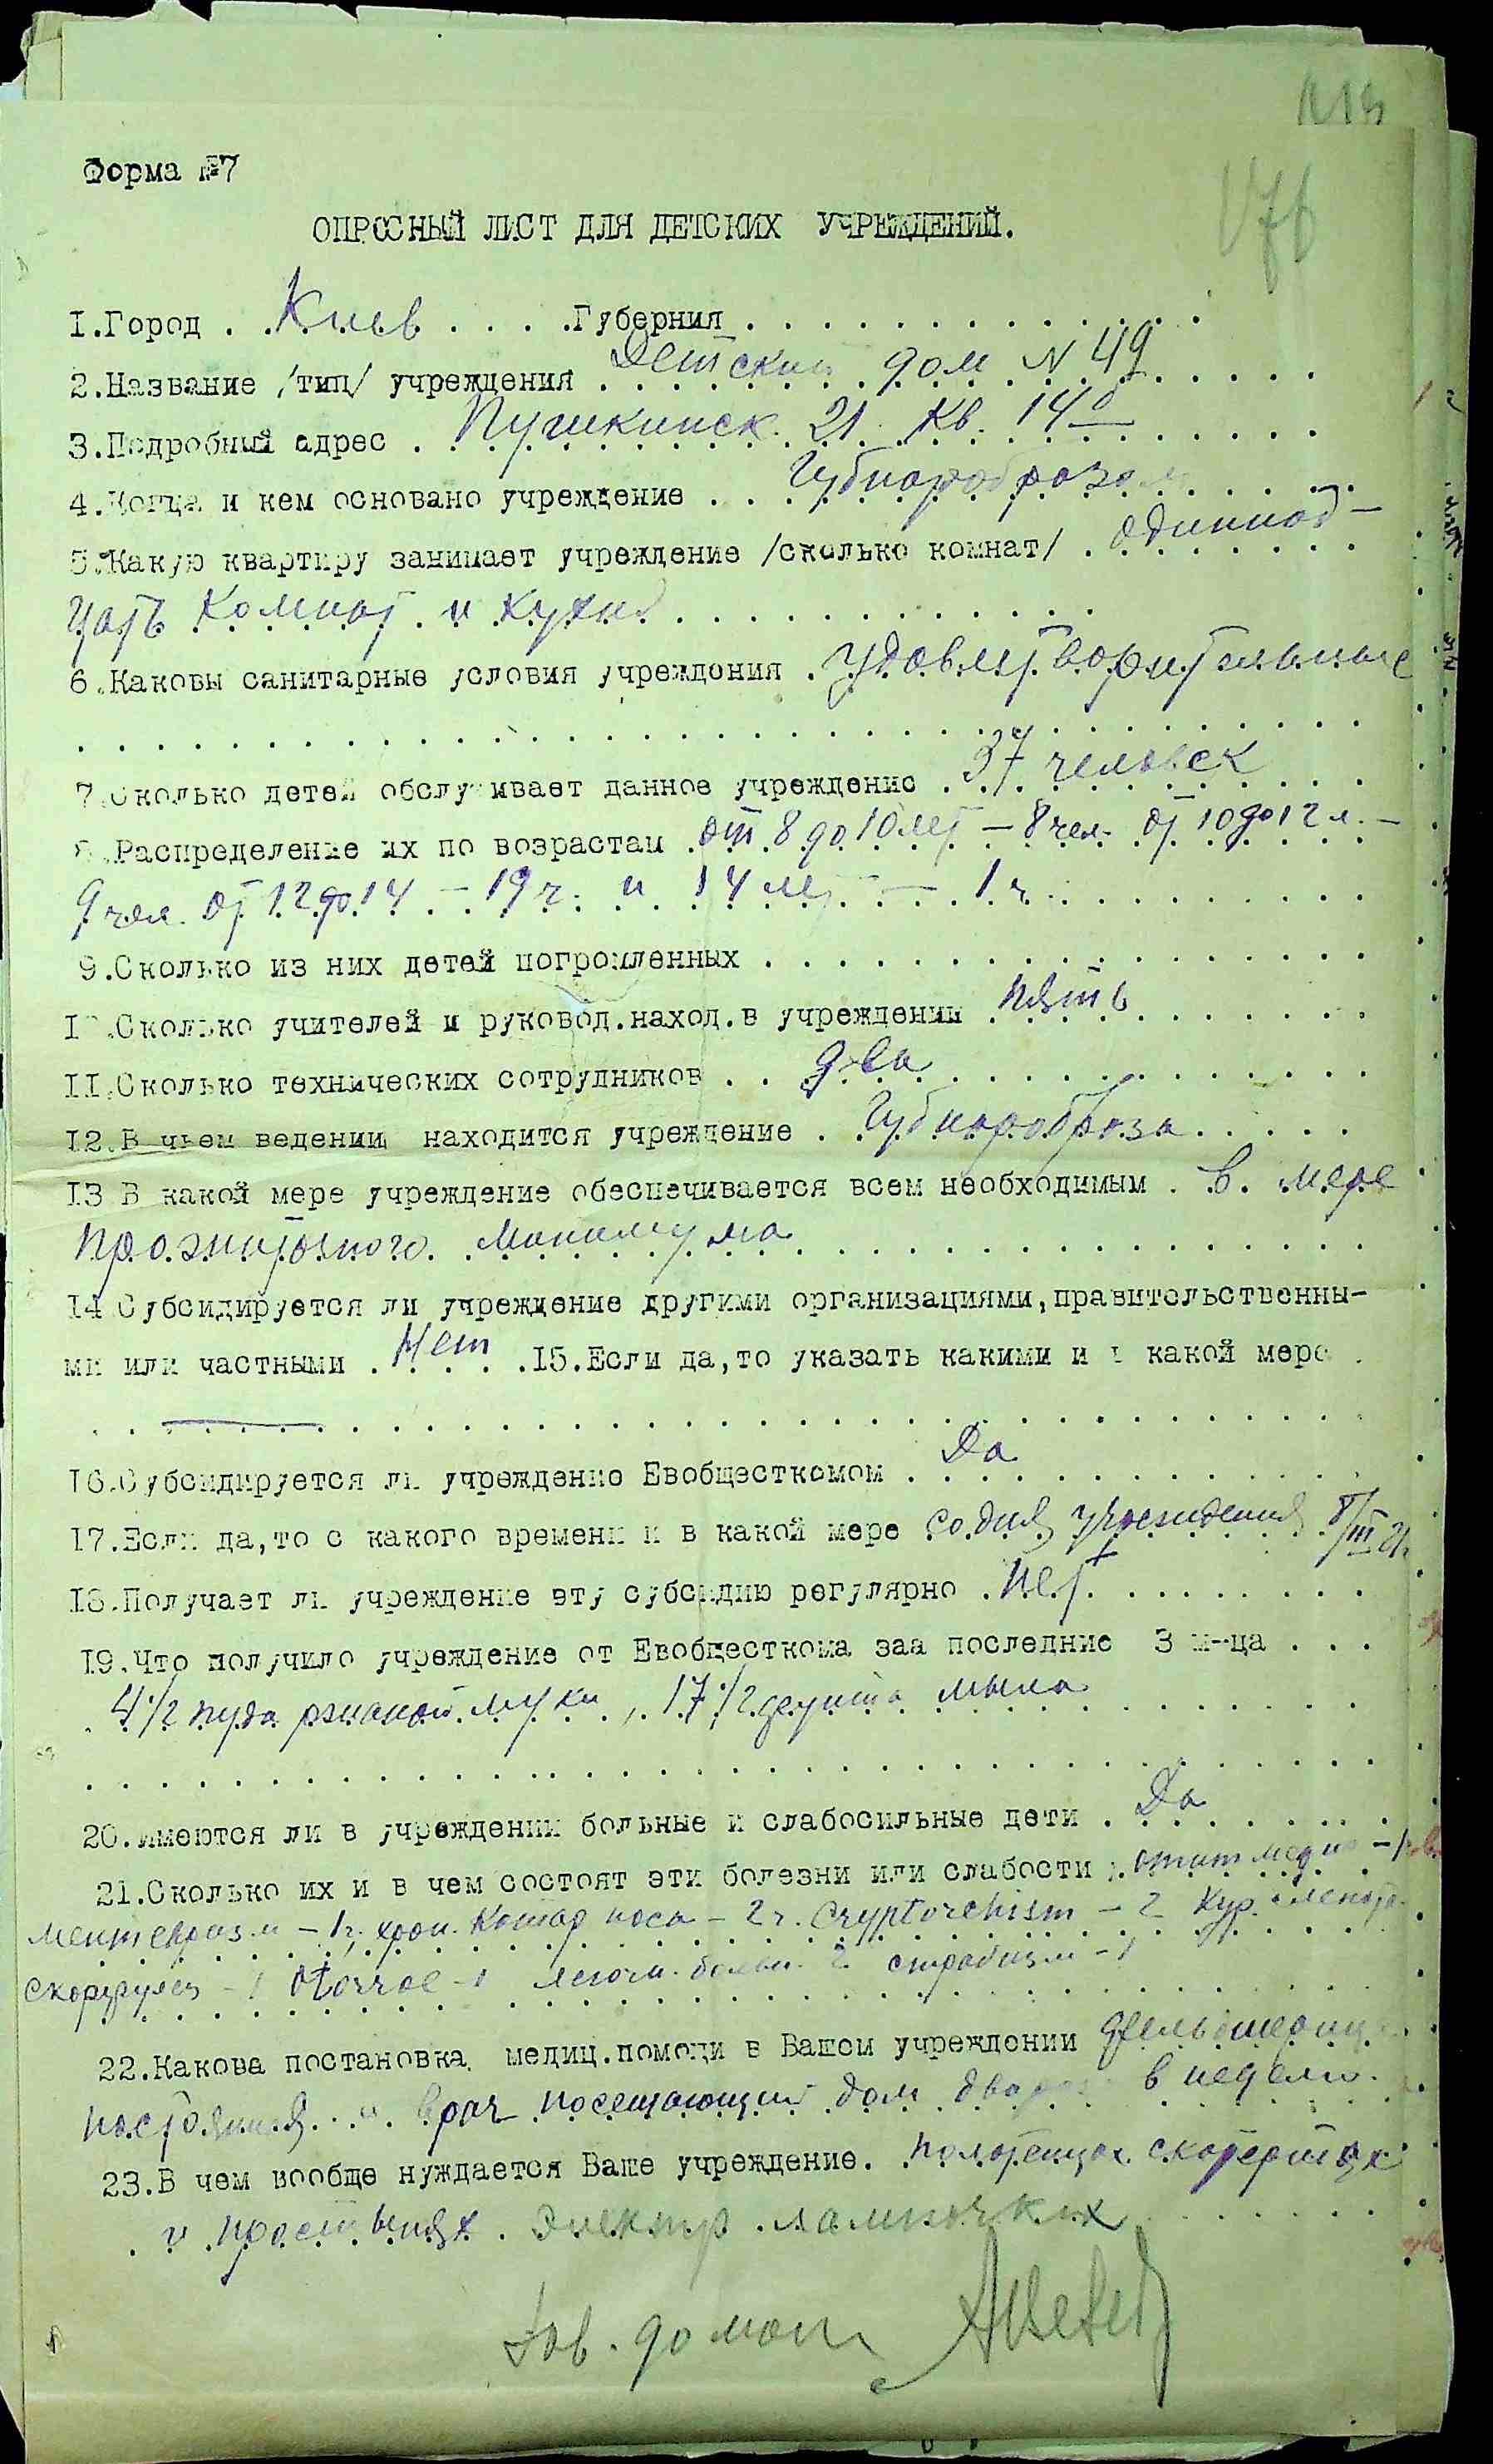 Форма №7
176
ОПРОСНЫЙ ЛИСТ ДЛЯ ДЕТСКИХ УЧРЕЖДЕНИЙ.
I.Город . . Киев . . . . .Губерния . . . . . . . . . . . . .
2.Название /тип/ учреждения . Детский дом N 49
3.Подробный адрес . Пушкинск. 21. Кв. 14
4.Когда и кем основано учреждение . . Губнаробразом
5.Какую квартиру занимает учреждение /сколько комнат/ . одиннад-
цать комнат и кухня
6.Каковы санитарные условия учреждения . удовлетворительные
7.Сколько детей обслуживает данное учреждение . 37 человек
8.Распределение их по возрастам . от 8 до 10 лет – 8 чел. от 10 до 12 л. –
9 чел. от 12 до 14 – 19 ч. и 14 лет – 1 ч.
9.Сколько из них детей погромленных . . . . . . . . . . . . .
10.Сколько учителей и руковод.наход.в учреждении . пять
II.Сколько технических сотрудников . . два
I2.В чьем ведении находится учреждение . Губнаробраза
I3 В какой мере учреждение обеспечивается всем необходимым . в мере
прожиточного минимума
I4 Субсидируется ли учреждение другими организациями,правительственны-
ми или частными . Нет . .I5.Если да,то указать какими и в какой мере .
I6.Субсидируется ли учреждение Евобщесткомом . Да
I7.Если да,то с какого времени и в какой мере со дня учреждения 8/III 21
I8.Получает ли учреждение эту субсидию регулярно . Нет
I9.Что получило учреждение от Евобщесткома заа последние 3 м-ца . . .
4 1/2 пуда ржаной муки, 17 1/2 мыла
20.Имеются ли в учреждении больные и слабосильные дети . Да
21.Сколько их и в чем состоят эти болезни или слабости . отит медиа – 1
– 1 ч. хрон. катар носа – 2 ч. Cryptorchism – 2
– 1 Otorrae – 1 легочн. больн. 2 страбизм – 1
22.Какова постановка медиц.помощи в Вашем учреждении фельдшерица
постоянная и врач посещающий дом два раза в неделю.
23.В чем вообще нуждается Ваше учреждение. полотенцах скатертях
и простынях. Электр. лампочках
Зав. домом